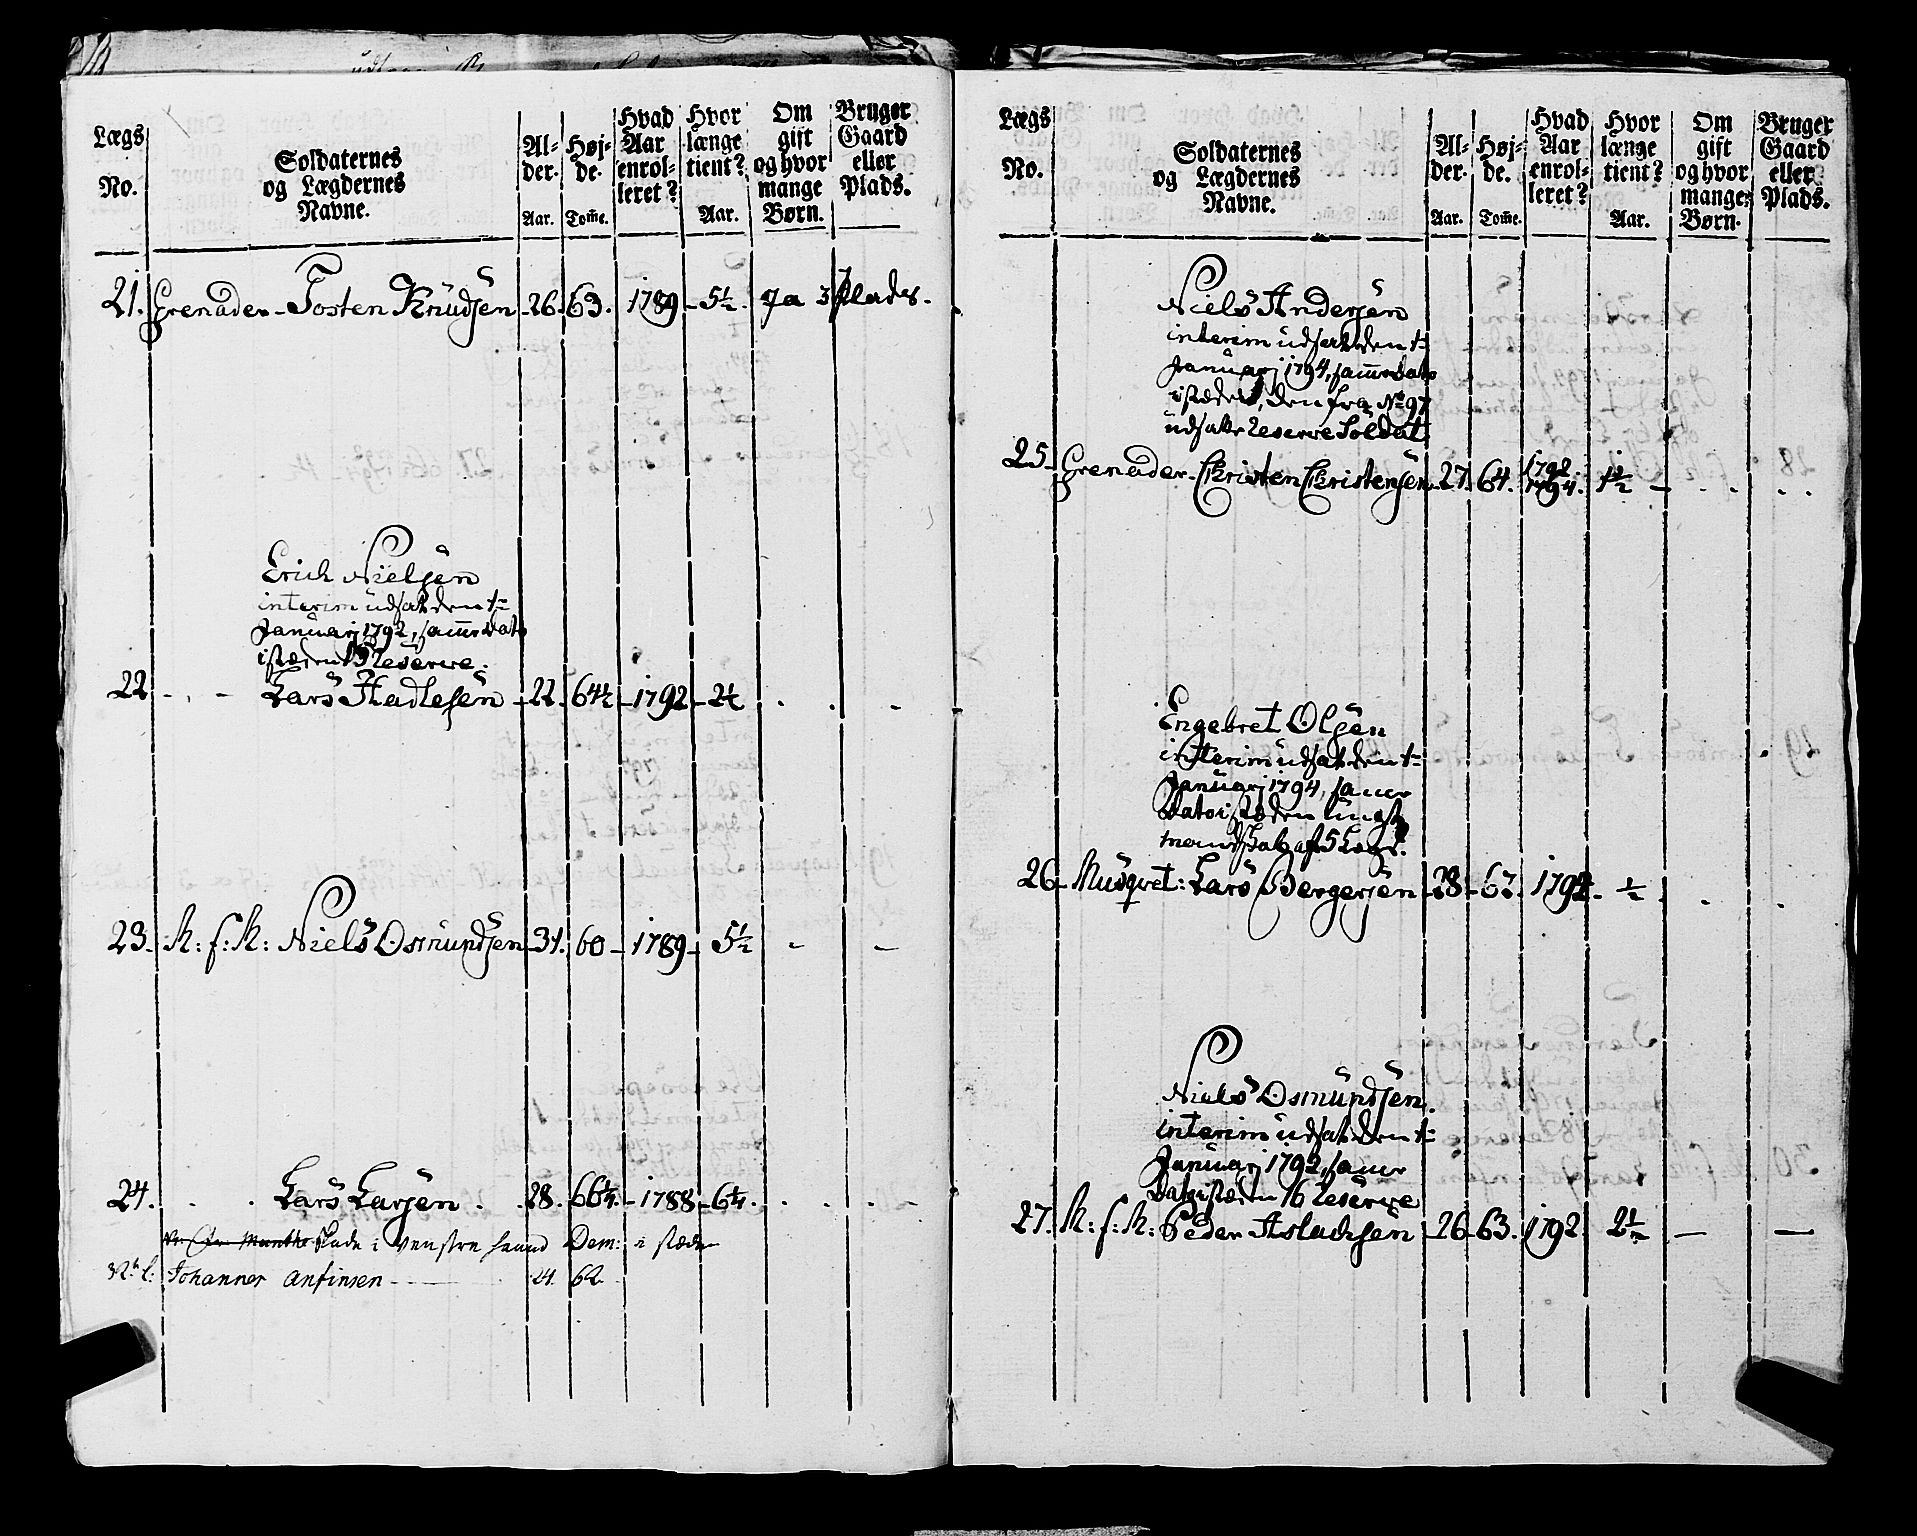 Lægs No.
Soldaternes og Lægdernes Navne.
Al- der. Aar.
Høj- de. Tom̅e.
Hvad Aar enrol- leret?
Hvor længe tient? Aar.
Om gift og hvor mange Børn.
Bruger Gaard eller Plads.
21. Grenader - Tosten Knudsen - 26. 63. 1789 - 5½. Ja 3 Plads.
Erich Nielsen
interim udsat den 1te
Januarj 1792, samme Dato
isteden 15 Reserve.
22 - - Lars Hadlesen - 22. 64½ - 1792 - 2½ . . .
23. K: f: K: Niels Osmundsen - 31. 60 - 1789 - 5½ - -
24. . . Lars Larsen . . 28. 66¼. - 1788 - 6¼. . . .
skade i venstre haand Dem: i stæde
Johannes Anfinsen - - - 24. 62.
Lægs No.
Soldaternes og Lægdernes Navne.
Al- der. Aar.
Høj- de. Tom̅e.
Hvad Aar enrol- leret?
Hvor længe tient? Aar.
Om gift og hvor mange Børn.
Bruger Gaard eller Plads.
Niels Andersen
interim udsat den 1te
Januarj 1794, samme Dato
isteden, den fra No 97
udsatte Reserve Soldat
25 - Grenader - Christen Christensen - 27. 64. 1792. 1794. 1½ - . . . .
Engebret Olsen
interim udsat den 1te
Januarj 1794, samme
Dato isteden
mandskab af 5 Lægd.
26 - Musqvet: Lars Bergersen - 28 - 67. 1794 - ½ . . .
Niels Osmundsen.
interim udsat den 1te
Januarj 1792, samme
Dato isteden 16 Reserve
27. K: f: K: Peder Aslachsen - 26 - 63. 1792. 2½ - -